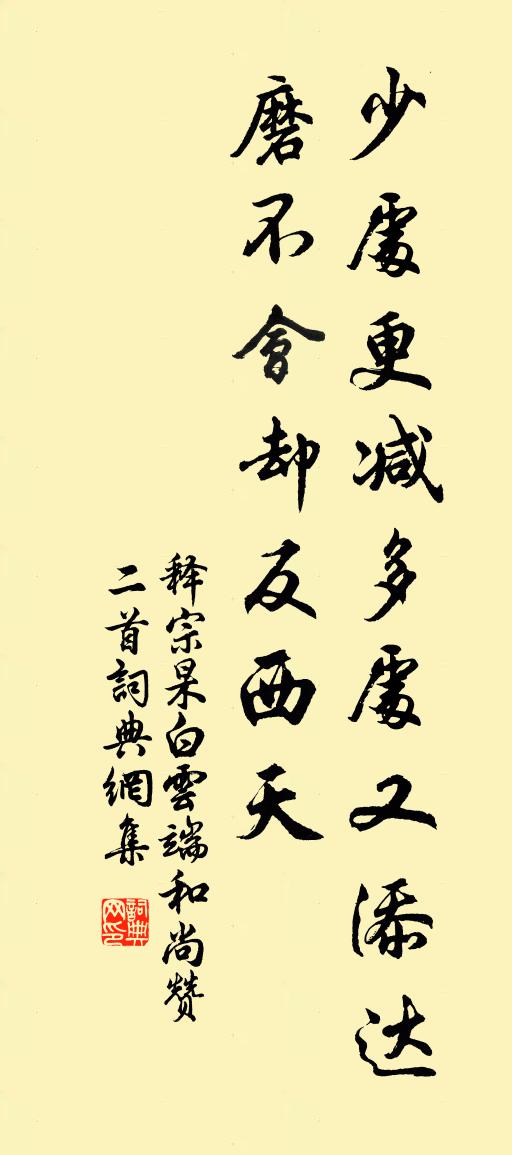 少處更减多處又添达
磨不會却反西天
释宗杲白雲端和尚赞
二首詞典網集
詞典
网印